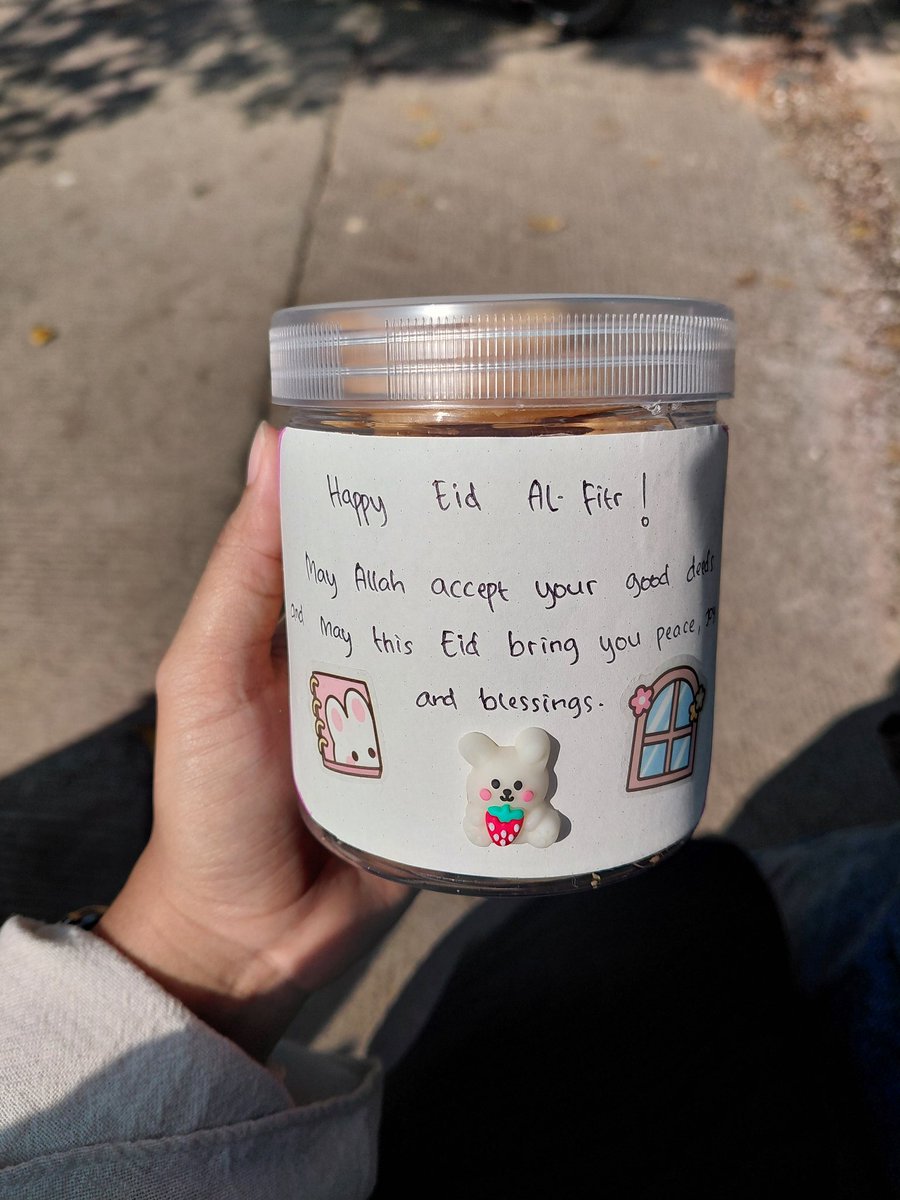 Happy Eid Al-Fitr!
May Allah accept your good deeds
and may this Eid bring you peace,
and blessings.